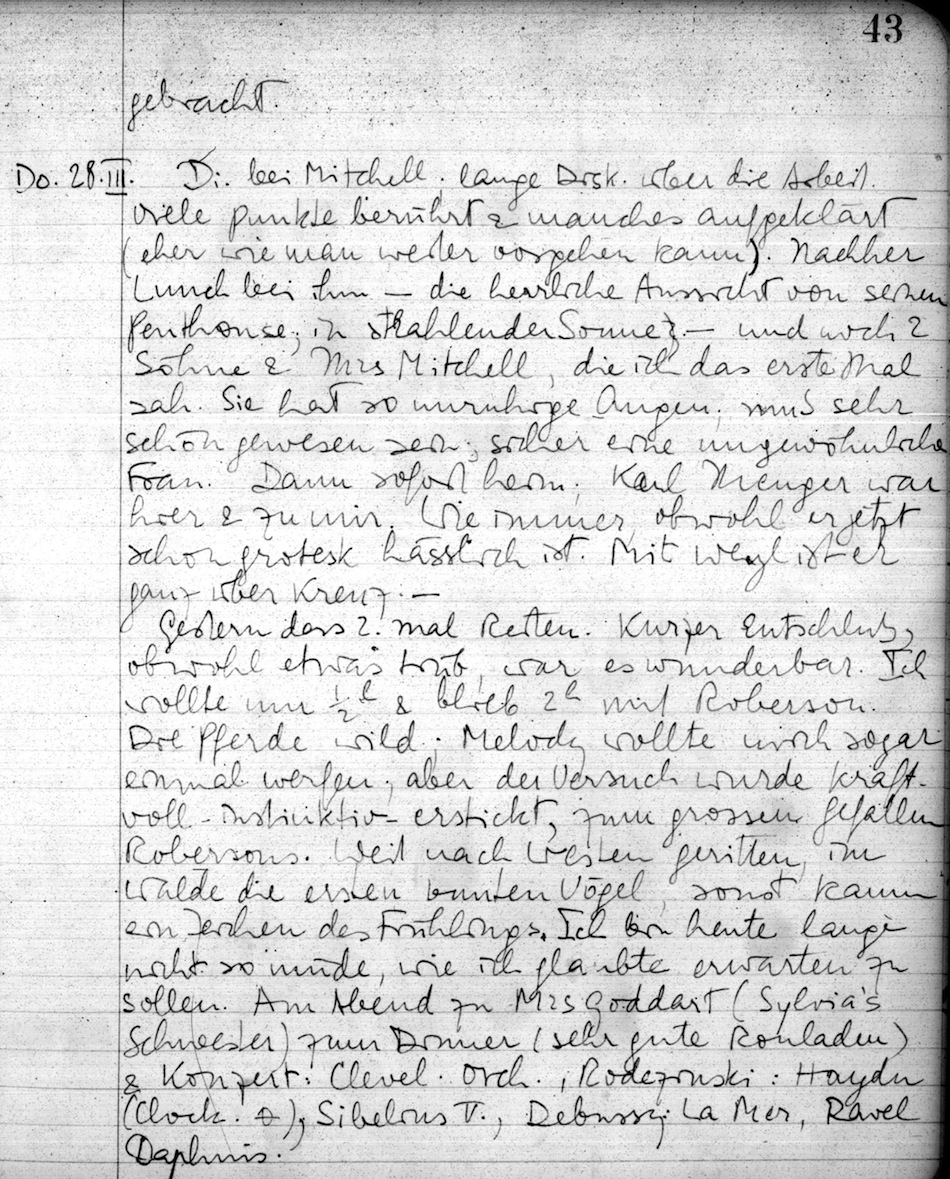 43
gebracht.
Do. 28.III. Di. bei Mitchell, lange Disk. über die Arbeit.
Viele Punkte berührt & manches aufgeklärt
(eher wie man weiter vorgehen kann). Nachher
Lunch bei ihm – die herrliche Aussicht von seinem
Penthouse, in strahlender Sonne, – und noch 2
Söhne & Mrs Mitchell, die ich das erste Mal
sah. Sie hat so unruhige Augen, muß sehr
schön gewesen sein, sicher eine ungewöhnliche
Frau. Dann sofort heim, Karl Menger war
hier & zu mir. Wie immer, obwohl er jetzt
schon grotesk hässlich ist. Mit Weyl ist er
ganz über Kreuz. –
Gestern dass 2. mal Reiten. Kurzer Entschluß,
obwohl etwas trüb, war es wunderbar. Ich
wollte um ½h & blieb 2h mit Roberson.
Die Pferde wild, Melody wollte mich sogar
einmal werfen, aber der Versuch wurde kraft-
voll-instinktiv- erstickt, zum grossen Gefallen
Robersons. Weit nach Westen geritten, im
Walde die ersten bunten Vögel, sonst kaum
ein Zeichen des Frühlings. Ich bin heute lange
nicht so müde, wie ich glaubte erwarten zu
sollen. Am Abend zu Mrs Goddart (Sylvia's
Schwester) zum Dinner (sehr gute Rouladen)
& Konzert: Clevel. Orch., Rodezinski: Haydn
(Clock.), Sibelius V., Debussy La Mer, Ravel
Daphnis.